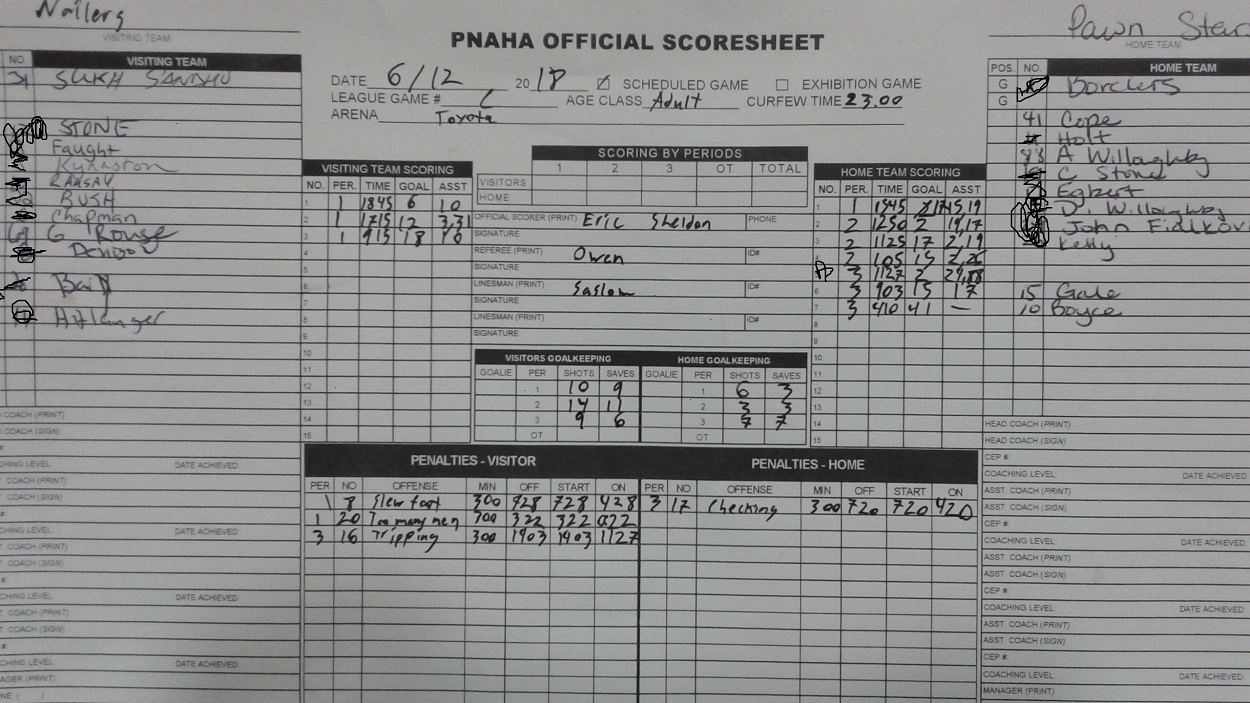 Nailers
VISITING TEAM
PNAHA OFFICIAL SCORESHEET
Pawn Star
HOME TEAM
NO. VISITING TEAM
SUKH SANDHU
STONE
Faught
Kynaston
RAMSAY
BUSH
Chapman
G Rouse
Denboo
Bail
Aflanger
DATE 6/12 2018 SCHEDULED GAME EXHIBITION GAME
LEAGUE GAME # C AGE CLASS Adult CURFEW TIME 23.00
ARENA Toyota
SCORING BY PERIODS
1 2 3 OT TOTAL
VISITORS
HOME
VISITING TEAM SCORING
NO. PER. TIME GOAL ASST
1 1 1845 6 10
2 1 1715 12 3,31
3 1 915 18 10
4
5
6
7
8
9
10
11
12
13
14
15
OFFICIAL SCORER (PRINT) Eric Sheldon PHONE
SIGNATURE
REFEREE (PRINT) Owen ID#
SIGNATURE
LINESMAN (PRINT) Saslow ID#
SIGNATURE
LINESMAN (PRINT) ID#
SIGNATURE
VISITORS GOALKEEPING HOME GOALKEEPING
GOALIE PER SHOTS SAVES GOALIE PER SHOTS SAVES
1 10 9 1 6 3
2 14 11 2 3 3
3 9 6 3 7 7
OT OT
HOME TEAM SCORING
NO. PER. TIME GOAL ASST
1 1 1545 17 15,19
2 2 1250 2 19,17
3 2 1125 17 2,19
2 105 15 2,26
3 1127 2
6 3 903 15 17
7 3 410 41 —
8
9
10
11
12
13
14
15
POS. NO. HOME TEAM
G Borders
G
41 Cope
Holt
88 A Willoughby
C Stone
Egbert
D. Willoughby
John Fialkovi
Kelly
15 Gale
10 Boyce
PENALTIES - VISITOR
PER NO OFFENSE MIN OFF START ON
1 8 Slew foot 300 928 728 428
1 20 Too many men 300 322 322 022
3 16 Tripping 300 1903 1903 1127
PENALTIES - HOME
PER NO OFFENSE MIN OFF START ON
3 17 Checking 300 720 720 420
COACH (PRINT)
COACH (SIGN)
CHING LEVEL DATE ACHIEVED
COACH (PRINT)
COACH (SIGN)
CHING LEVEL DATE ACHIEVED
COACH (PRINT)
COACH (SIGN)
CHING LEVEL DATE ACHIEVED
COACH (PRINT)
COACH (SIGN)
CHING LEVEL DATE ACHIEVED
AGER (PRINT)
NE ( )
HEAD COACH (PRINT)
HEAD COACH (SIGN)
CEP #:
COACHING LEVEL DATE ACHIEVED
ASST. COACH (PRINT)
ASST. COACH (SIGN)
CEP #:
COACHING LEVEL DATE ACHIEVED
ASST COACH (PRINT)
ASST. COACH (SIGN)
CEP #:
COACHING LEVEL DATE ACHIEVED
ASST. COACH (PRINT)
ASST. COACH (SIGN)
CEP #:
COACHING LEVEL: DATE ACHIEVED
MANAGER (PRINT)